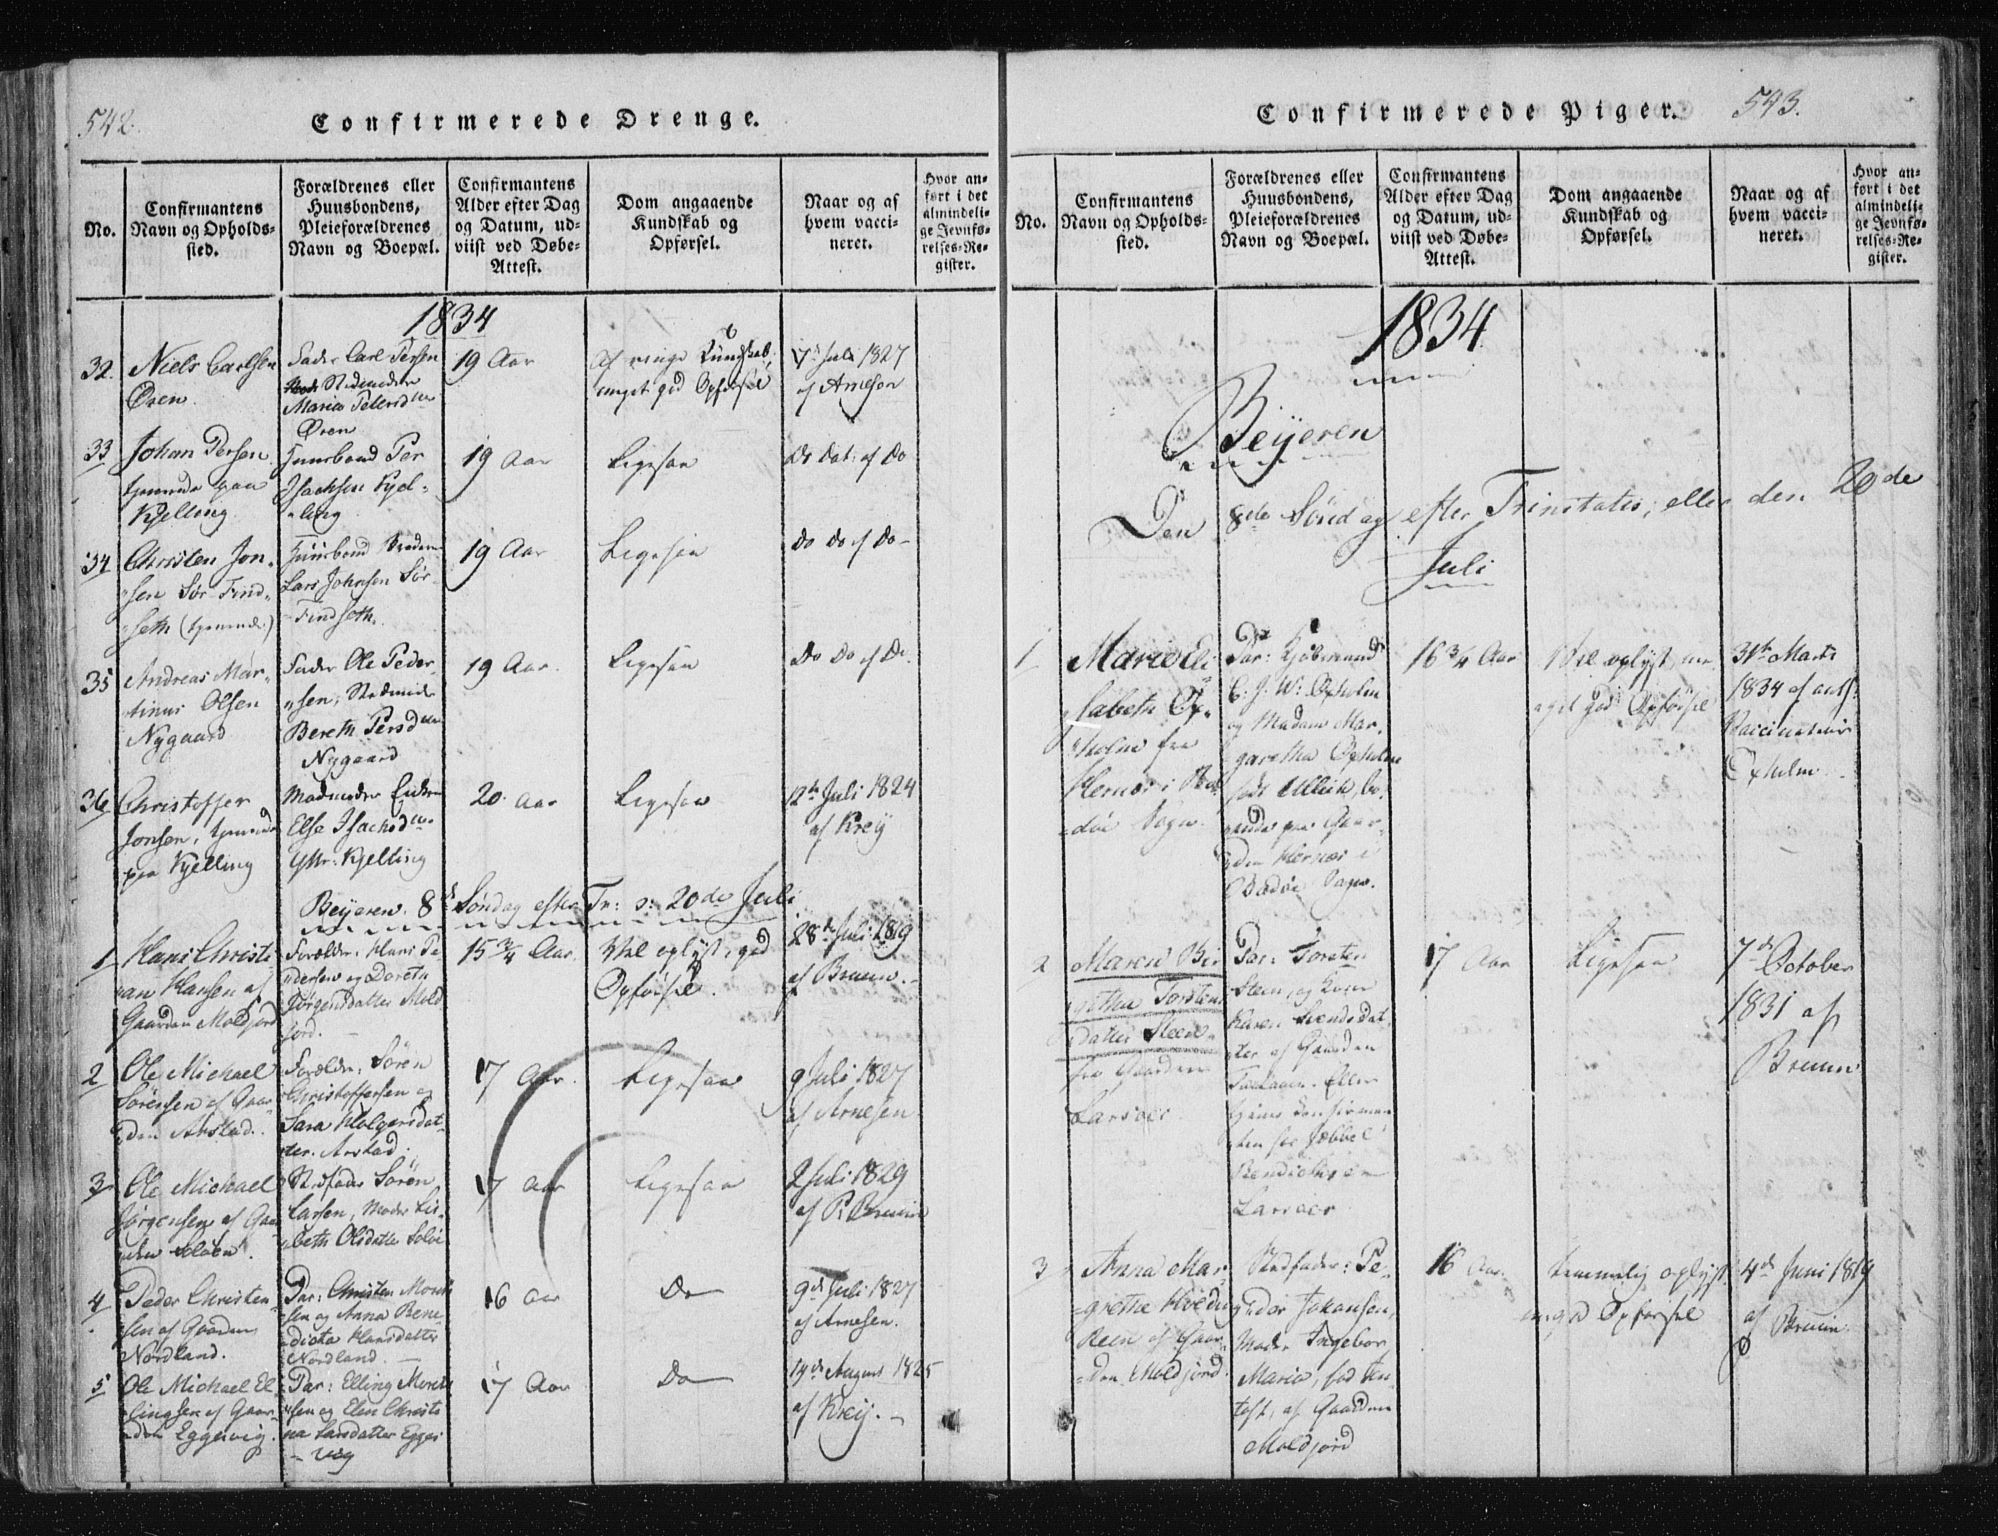 542.
Confirmerede Drenge.
No.
Confirmantens
Navn og Opholds-
sted.
Forældrenes eller
Huusbondens,
Pleieforældrenes
Navn og Boepæl.
Confirmantens
Alder efter Dag
og Datum, ud-
viist ved Døbe-
Attest.
Dom angaaende
Kundskab og
Opførsel.
Naar og af
hvem vacci-
neret.
Hvor an-
ført i det
almindeli-
ge Jevnfø-
relses-Re-
gister.
1834
32.
Niels Carlsen
Øren
Fader Carl Persen
Stedmoder
Maria Petersd
Øren
19 Aar
Af ringe Kundskab,
meget god Opførsel
7d Juli 1827
af Arnesen
33
Johan Persen
tjenende paa
Kjelling
Huusbond Per
Isachsen Kjel-
ling
19 Aar
Ligesaa
Do Dat: af Do
34
Christen Jon-
sen Sør-Find-
seth (tjenende)
Huusbond
Lars Johnsen Sør-
Findseth.
19 Aar
Ligesaa
Do Do af Do
35
Andreas Mar-
tinus Olsen
Nygaard
Fader Ole Peder-
sen, Stedmoder
Bereth Persd
Nygaard
19 Aar.
Ligesaa
Do Do af Do.
36
Christoffer
Jonsen, tjenende
paa Kjelling
Madmoder Enken
Else Isachsd
Kjelling
20 Aar
Ligesaa
12te Juli 1824
af Kreij
Beijeren. 8de Søndag efter Tr: o: 20de Juli
1
Hans Christi-
an Hansen af
Gaarden Moldjord
Forældr: Hans Pe-
dersen og Doreth
Jørgensdatter Mold-
jord.
15 3/4 Aar.
Vel oplyst, god
Opførsel.
28de Juli 1819
af Bruun.
2
Ole Michael
Sörensen af Gaar-
den Arstad.
Forældr: Sören
Christoffersen og
Sara Holgersdat-
ter. Arstad.
17 Aar.
Ligesaa
9 Juli 1827
af Arnesen
3
Ole Michael
Jörgensen af Gaar-
den Soløen.
Stedfader Sören
Larsen, Moder Lis-
beth Olsdatter Soløe
17 Aar
Ligesaa
2 Juli 1829
af P. Bruun
4
Peder Christen-
sen af Gaarden
Nordland.
Par: Christen Mont-
sen og Anna Bene-
dicta Hansdatter
Nordland.
16 Aar
Do
9de Juli 1827
af Arnesen.
5
Ole Michael El-
lingsen af Gaar-
den Eggevig.
Par: Elling Morte-
sen og Elen Christi-
na Larsdatter Egge-
vig
17 Aar
Do
19de August 1825
af Kreij.
Confirmerede Piger.
543.
No.
Confirmantens
Navn og Opholds-
sted.
Forældrenes eller
Huusbondens,
Pleieforældrenes
Navn og Boepæl.
Confirmantens
Alder efter Dag
og Datum, ud-
viist ved Døbe-
Attest.
Dom angaaende
Kundskab og
Opførsel.
Naar og af
hvem vacci-
neret.
Hvor an-
ført i det
almindeli-
ge Jevnfø-
relses-Re-
gister.
1834
Beijeren
Den 8de Söndag efter Trinitatis, eller den 20de
Juli
1
Marie Eli-
sabeth Ox-
holm fra
Hernæs i Bod-
döe Sogn.
Par: Kjöbmand
C. J. W. Oxholm
og Madam Mar-
garetha Oxholm
født Ullich, bo-
ende paa Gaar-
den Hernæs i
Bodöe Sogn.
16 3/4 Aar
Vel oplyst, me-
get god Opførsel
31te Marts
1834 af
Vaccinateur
Oxholm.
2
Maren Bir-
githa Torstens-
datter Steen
fra Gaarden
Larsoer
Par: Torsten
Steen, og Kone
Karen Svendsdat-
ter af Gaarden
17 Aar
Ligesaa
7de October
1831 af
Bruun
Larsoer
3
Anna Mar-
grethe Hveding
Reen af Gaar-
den Moldjord
Stedfader: Pe-
der Johansen,
Moder Ingebor
Maria, fød
af Gaarden
Moldjord
16 Aar.
temmelig oplyst
god Opførsel
4de Juni 1819
af Bruun.